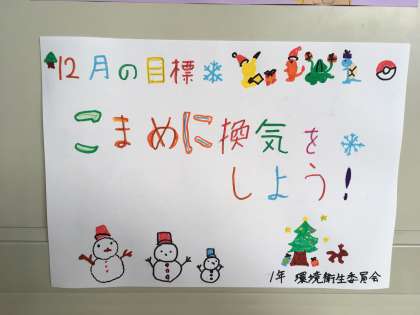 12月の目標
こまめに換気を
しよう!
1年 環境衛生委員会